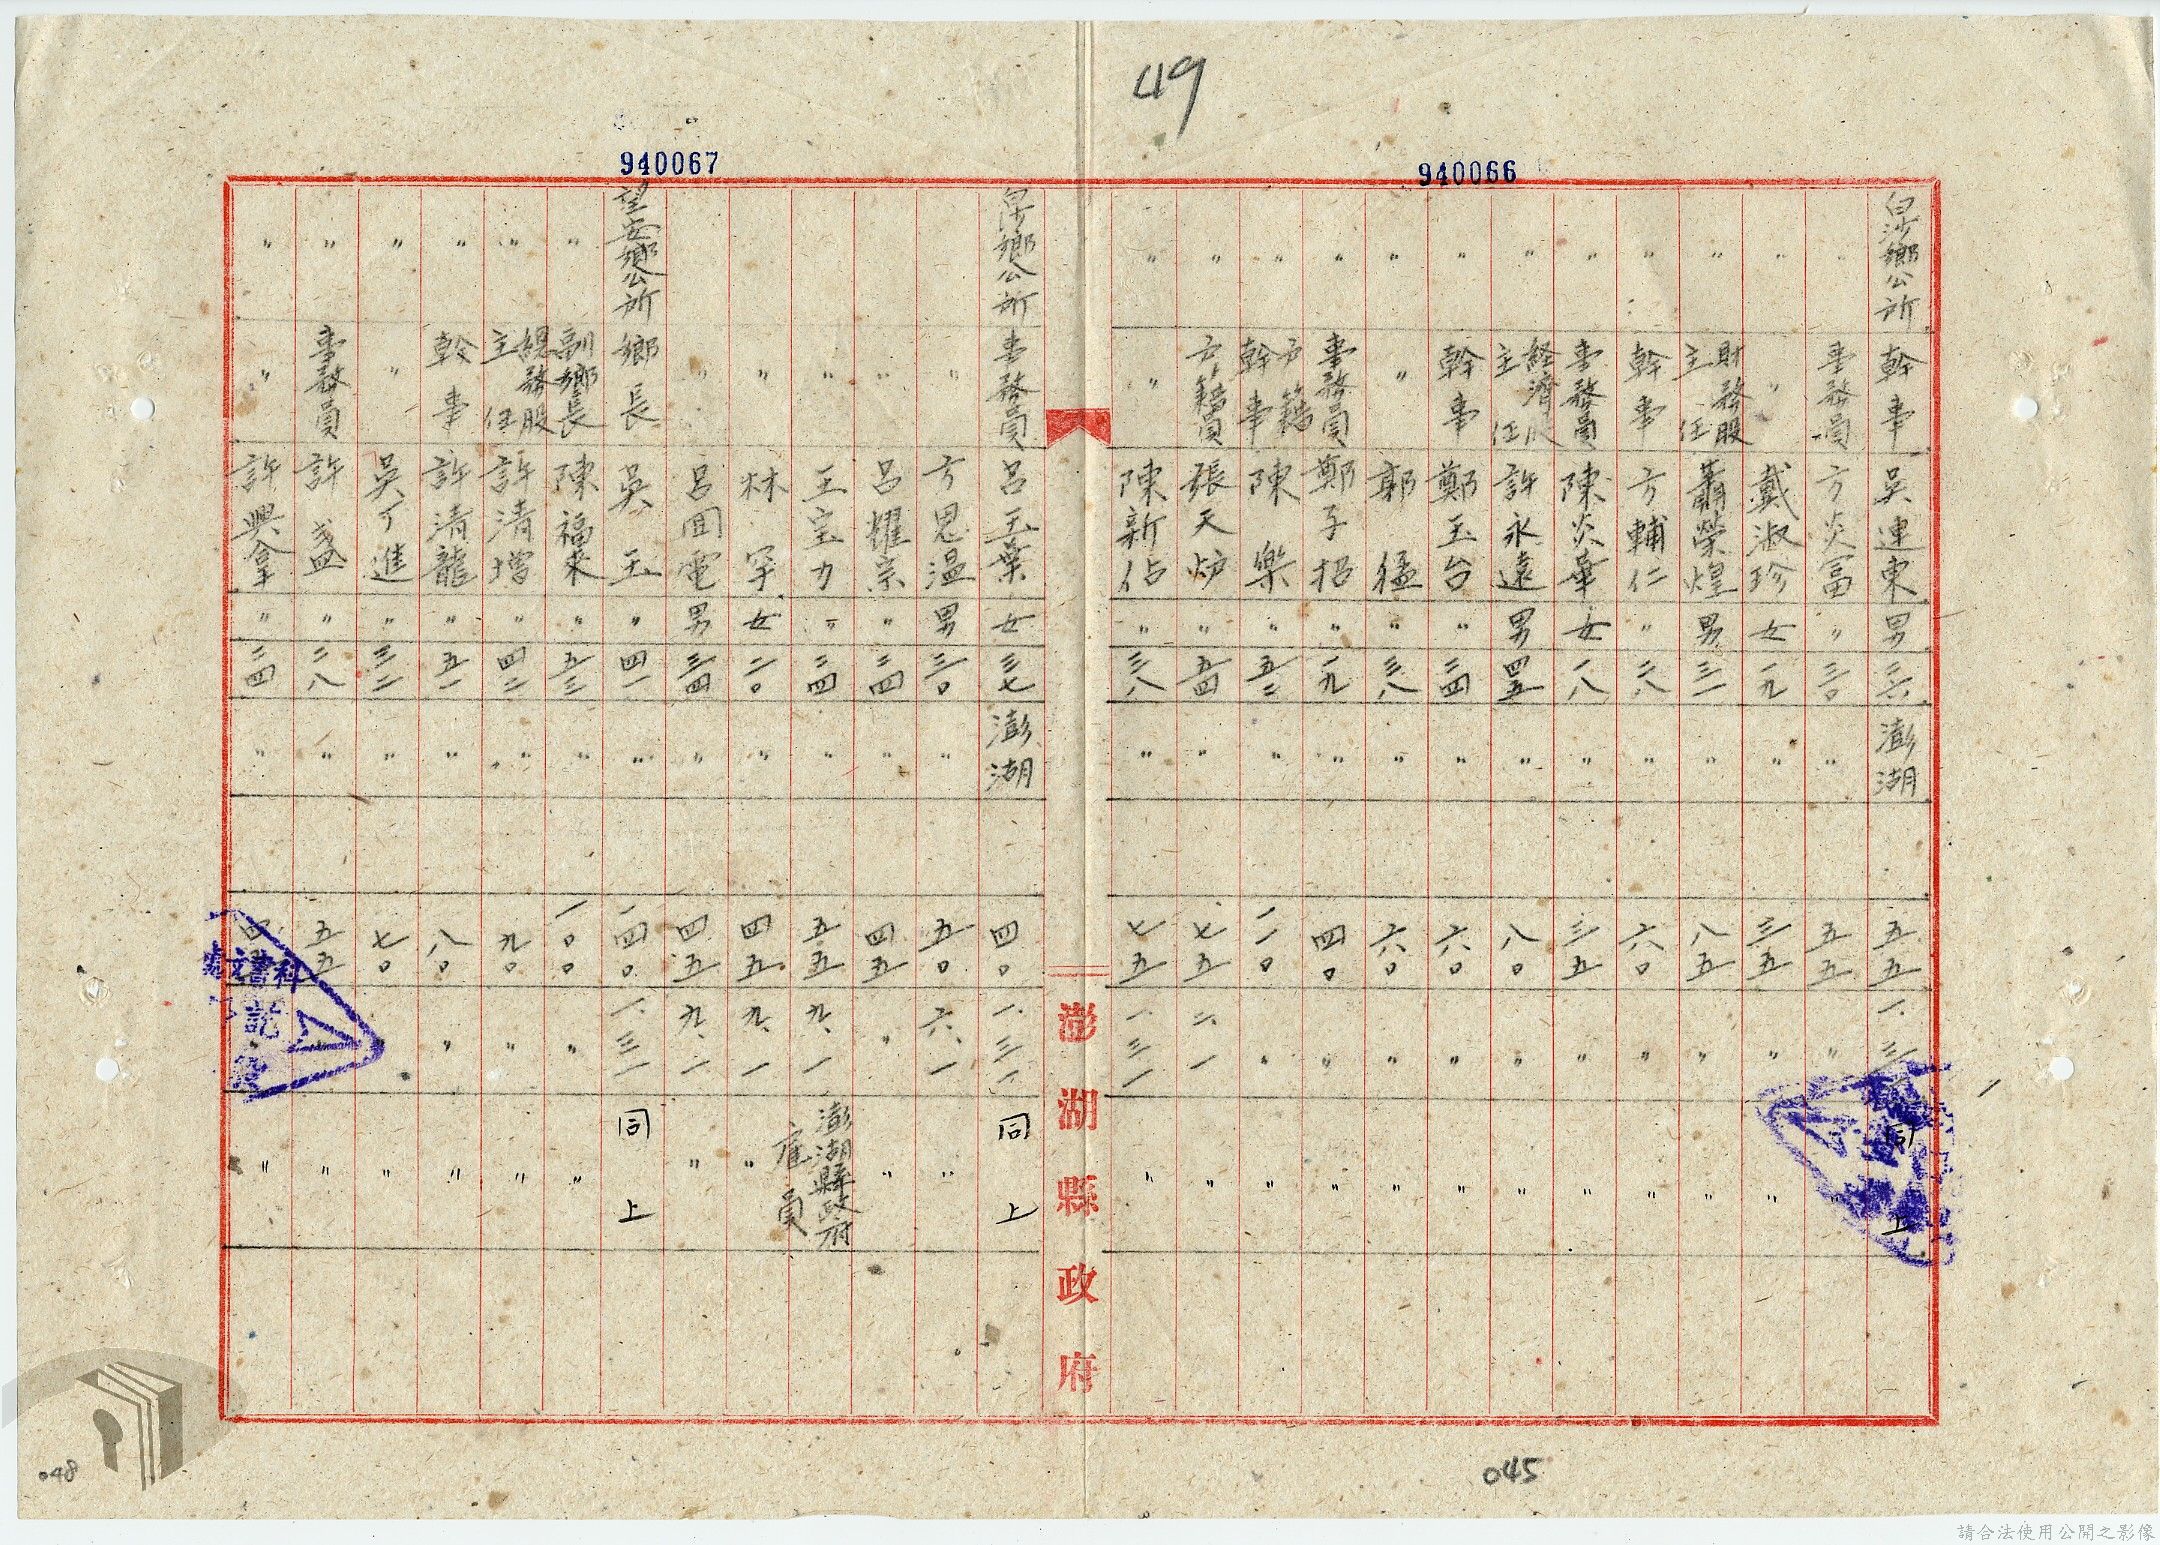 49
940066
白沙鄉公所 幹事 吳連東 男 三六 澎湖 五五 一、三一 同上
〃 事務員 方炎富 〃 三〇 〃 五五 〃 〃
〃 〃 戴淑珍 女 一九 〃 三五 〃 〃
〃 財務股主任 蕭榮煌 男 三一 〃 八五 〃 〃
〃 幹事 方輔仁 〃 二八 〃 六〇 〃 〃
〃 事務員 陳炎華 女 一八 〃 三五 〃 〃
〃 經濟股主任 許永遠 男 四五 〃 八〇 〃 〃
〃 幹事 鄭玉台 〃 三四 〃 六〇 〃 〃
〃 〃 郭猛 〃 三八 〃 六〇 〃 〃
〃 事務員 鄭子招 〃 一九 〃 四〇 〃 〃
〃 戶籍幹事 陳樂 〃 五二 〃 一一〇 〃 〃
〃 戶籍員 張天炉 〃 五四 〃 七五 二、一 〃
〃 〃 陳新佔 〃 三八 〃 七五 一、三一 〃
澎湖縣政府
940067
白沙鄉公所 事務員 呂玉葉 女 三七 澎湖 四〇 一、三一 同上
〃 方恩溫 男 三〇 〃 五〇 六、一 〃
〃 呂耀宗 〃 二四 〃 四五 〃 〃
〃 王宝力 〃 二四 〃 五五 九、一 澎湖縣政府雇員
〃 林罕 女 二〇 〃 四五 九、一 〃
〃 呂回電 男 三四 〃 四五 九、一 〃
望安鄉公所 鄉長 吳玉 〃 四一 〃 一四〇 一、三一 同上
〃 副鄉長 陳福來 〃 五三 〃 一〇〇 〃 〃
〃 總務股主任 許清增 〃 四二 〃 九〇 〃 〃
〃 幹事 許清龍 〃 五一 〃 八〇 〃 〃
〃 〃 吳丁進 〃 三二 〃 七〇 〃 〃
〃 事務員 許盛 〃 二八 〃 五五 〃 〃
〃 〃 許興拿 〃 二四 〃 〃
045
048
請合法使用公開之影像